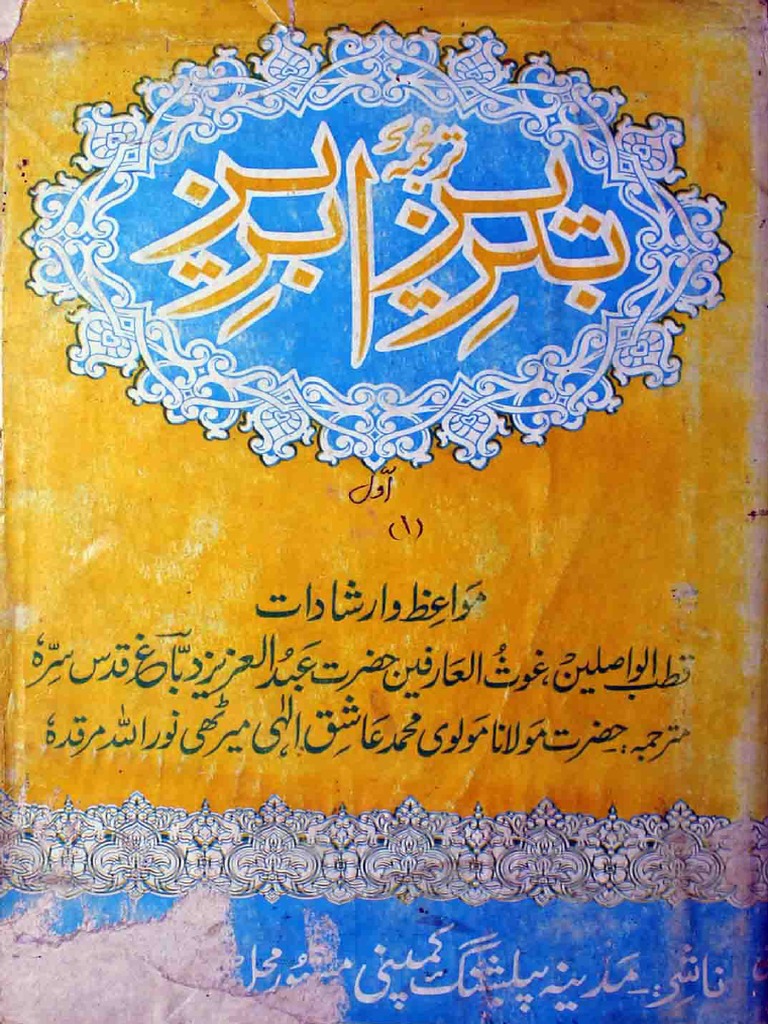 تبریز ترجمۂ ابریز
اوّل
(۱)
مواعظ وارشادات
قطب الواصلین، غوثُ العارفین حضرت عَبدُ العزیز دبّاغ قدس سرہٗ
مترجمہ: حضرت مولانا مولوی محمد عاشق الٰہی میرٹھی نور اللہ مرقدہٗ
ناشر: مدینہ پبلشنگ کمپنی محل